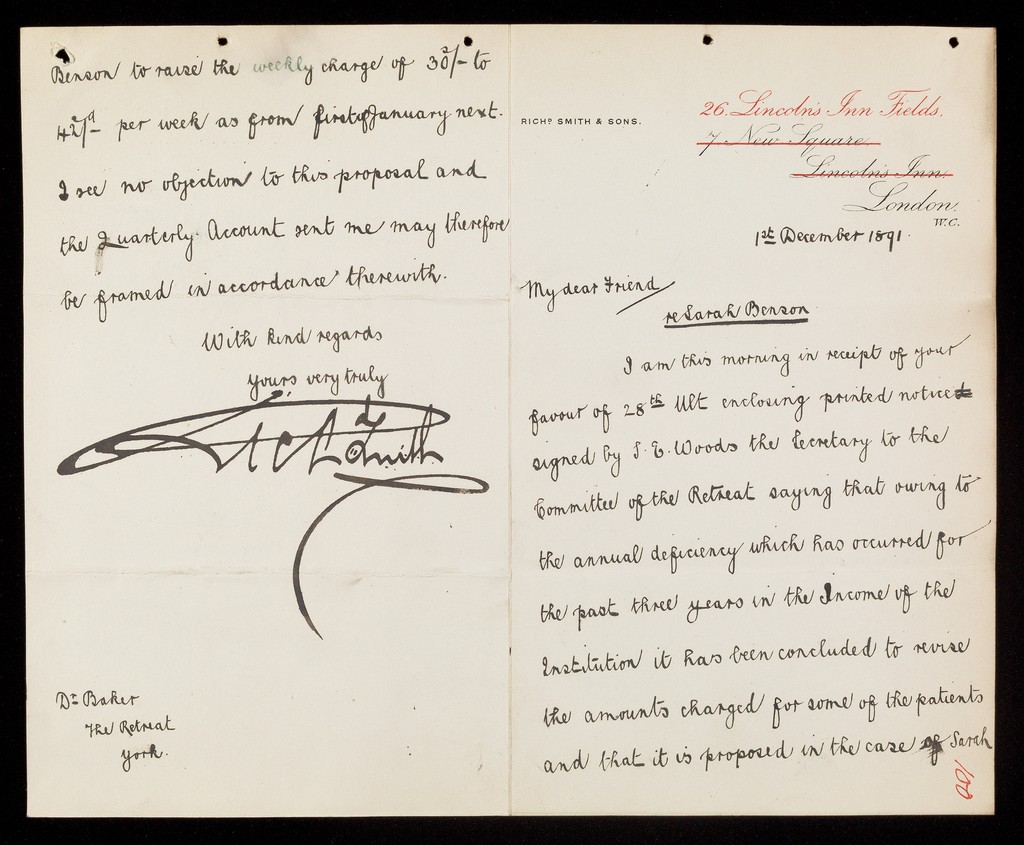 RICHD. SMITH & SONS.
26. Lincoln's Inn Fields.
7 New Square.
Lincoln's Inn.
London.
W.C.
1st December 1891.
My dear Friend
re Sarah Benson
I am this morning in receipt of your
favour of 28th Ult enclosing printed notice
signed by J. E. Woods the Secretary to the
Committee of the Retreat saying that owing to
the annual deficiency which has occurred for
the past three years in the Income of the
Institution it has been concluded to revise
the amounts charged for some of the patients
and that it is proposed in the case of Sarah
Benson to raise the weekly charge of 30s/- to
42s/-d per week as from first of January next.
I see no objection to this proposal and
the Quarterly Account sent me may therefore
be framed in accordance therewith.
With kind regards
yours very truly
Richd Smith
Dr Baker
The Retreat
York.